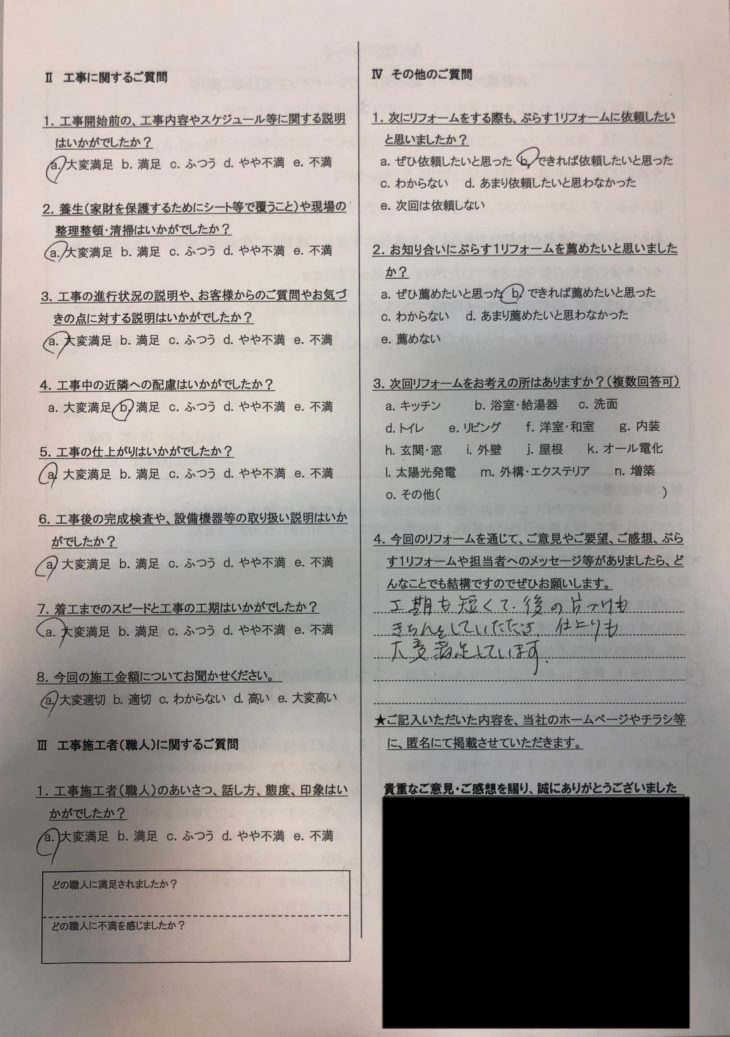 Ⅱ 工事に関するご質問
1. 工事開始前の、工事内容やスケジュール等に関する説明
はいかがでしたか？
a. 大変満足 b. 満足 c. ふつう d. やや不満 e. 不満
2. 養生(家財を保護するためにシート等で覆うこと)や現場の
整理整頓・清掃はいかがでしたか？
a. 大変満足 b. 満足 c. ふつう d. やや不満 e. 不満
3. 工事の進行状況の説明や、お客様からのご質問やお気づ
きの点に対する説明はいかがでしたか？
a. 大変満足 b. 満足 c. ふつう d. やや不満 e. 不満
4. 工事中の近隣への配慮はいかがでしたか？
a. 大変満足 b. 満足 c. ふつう d. やや不満 e. 不満
5. 工事の仕上がりはいかがでしたか？
a. 大変満足 b. 満足 c. ふつう d. やや不満 e. 不満
6. 工事後の完成検査や、設備機器等の取り扱い説明はいか
がでしたか？
a. 大変満足 b. 満足 c. ふつう d. やや不満 e. 不満
7. 着工までのスピードと工事の工期はいかがでしたか？
a. 大変満足 b. 満足 c. ふつう d. やや不満 e. 不満
8. 今回の施工金額についてお聞かせください。
a. 大変適切 b. 適切 c. わからない d. 高い e. 大変高い
Ⅲ 工事施工者(職人)に関するご質問
1. 工事施工者(職人)のあいさつ、話し方、態度、印象はい
かがでしたか？
a. 大変満足 b. 満足 c. ふつう d. やや不満 e. 不満
どの職人に満足されましたか？
どの職人に不満を感じましたか？
Ⅳ その他のご質問
1. 次にリフォームをする際も、ぷらす1リフォームに依頼したい
と思いましたか？
a. ぜひ依頼したいと思った b. できれば依頼したいと思った
c. わからない d. あまり依頼したいと思わなかった
e. 次回は依頼しない
2. お知り合いにぷらす1リフォームを薦めたいと思いました
か？
a. ぜひ薦めたいと思った b. できれば薦めたいと思った
c. わからない d. あまり薦めたいと思わなかった
e. 薦めない
3. 次回リフォームをお考えの所はありますか？(複数回答可)
a. キッチン b. 浴室・給湯器 c. 洗面
d. トイレ e. リビング f. 洋室・和室 g. 内装
h. 玄関・窓 i. 外壁 j. 屋根 k. オール電化
l. 太陽光発電 m. 外構・エクステリア n. 増築
o. その他( )
4. 今回のリフォームを通じて、ご意見やご要望、ご感想、ぷら
す1リフォームや担当者へのメッセージ等がありましたら、ど
んなことでも結構ですのでぜひお願いします。
工期も短くて、後の片づけも
きちんとしていただき、仕上りも
大変満足しています。
★ご記入いただいた内容を、当社のホームページやチラシ等
に、匿名にて掲載させていただきます。
貴重なご意見・ご感想を賜り、誠にありがとうございました